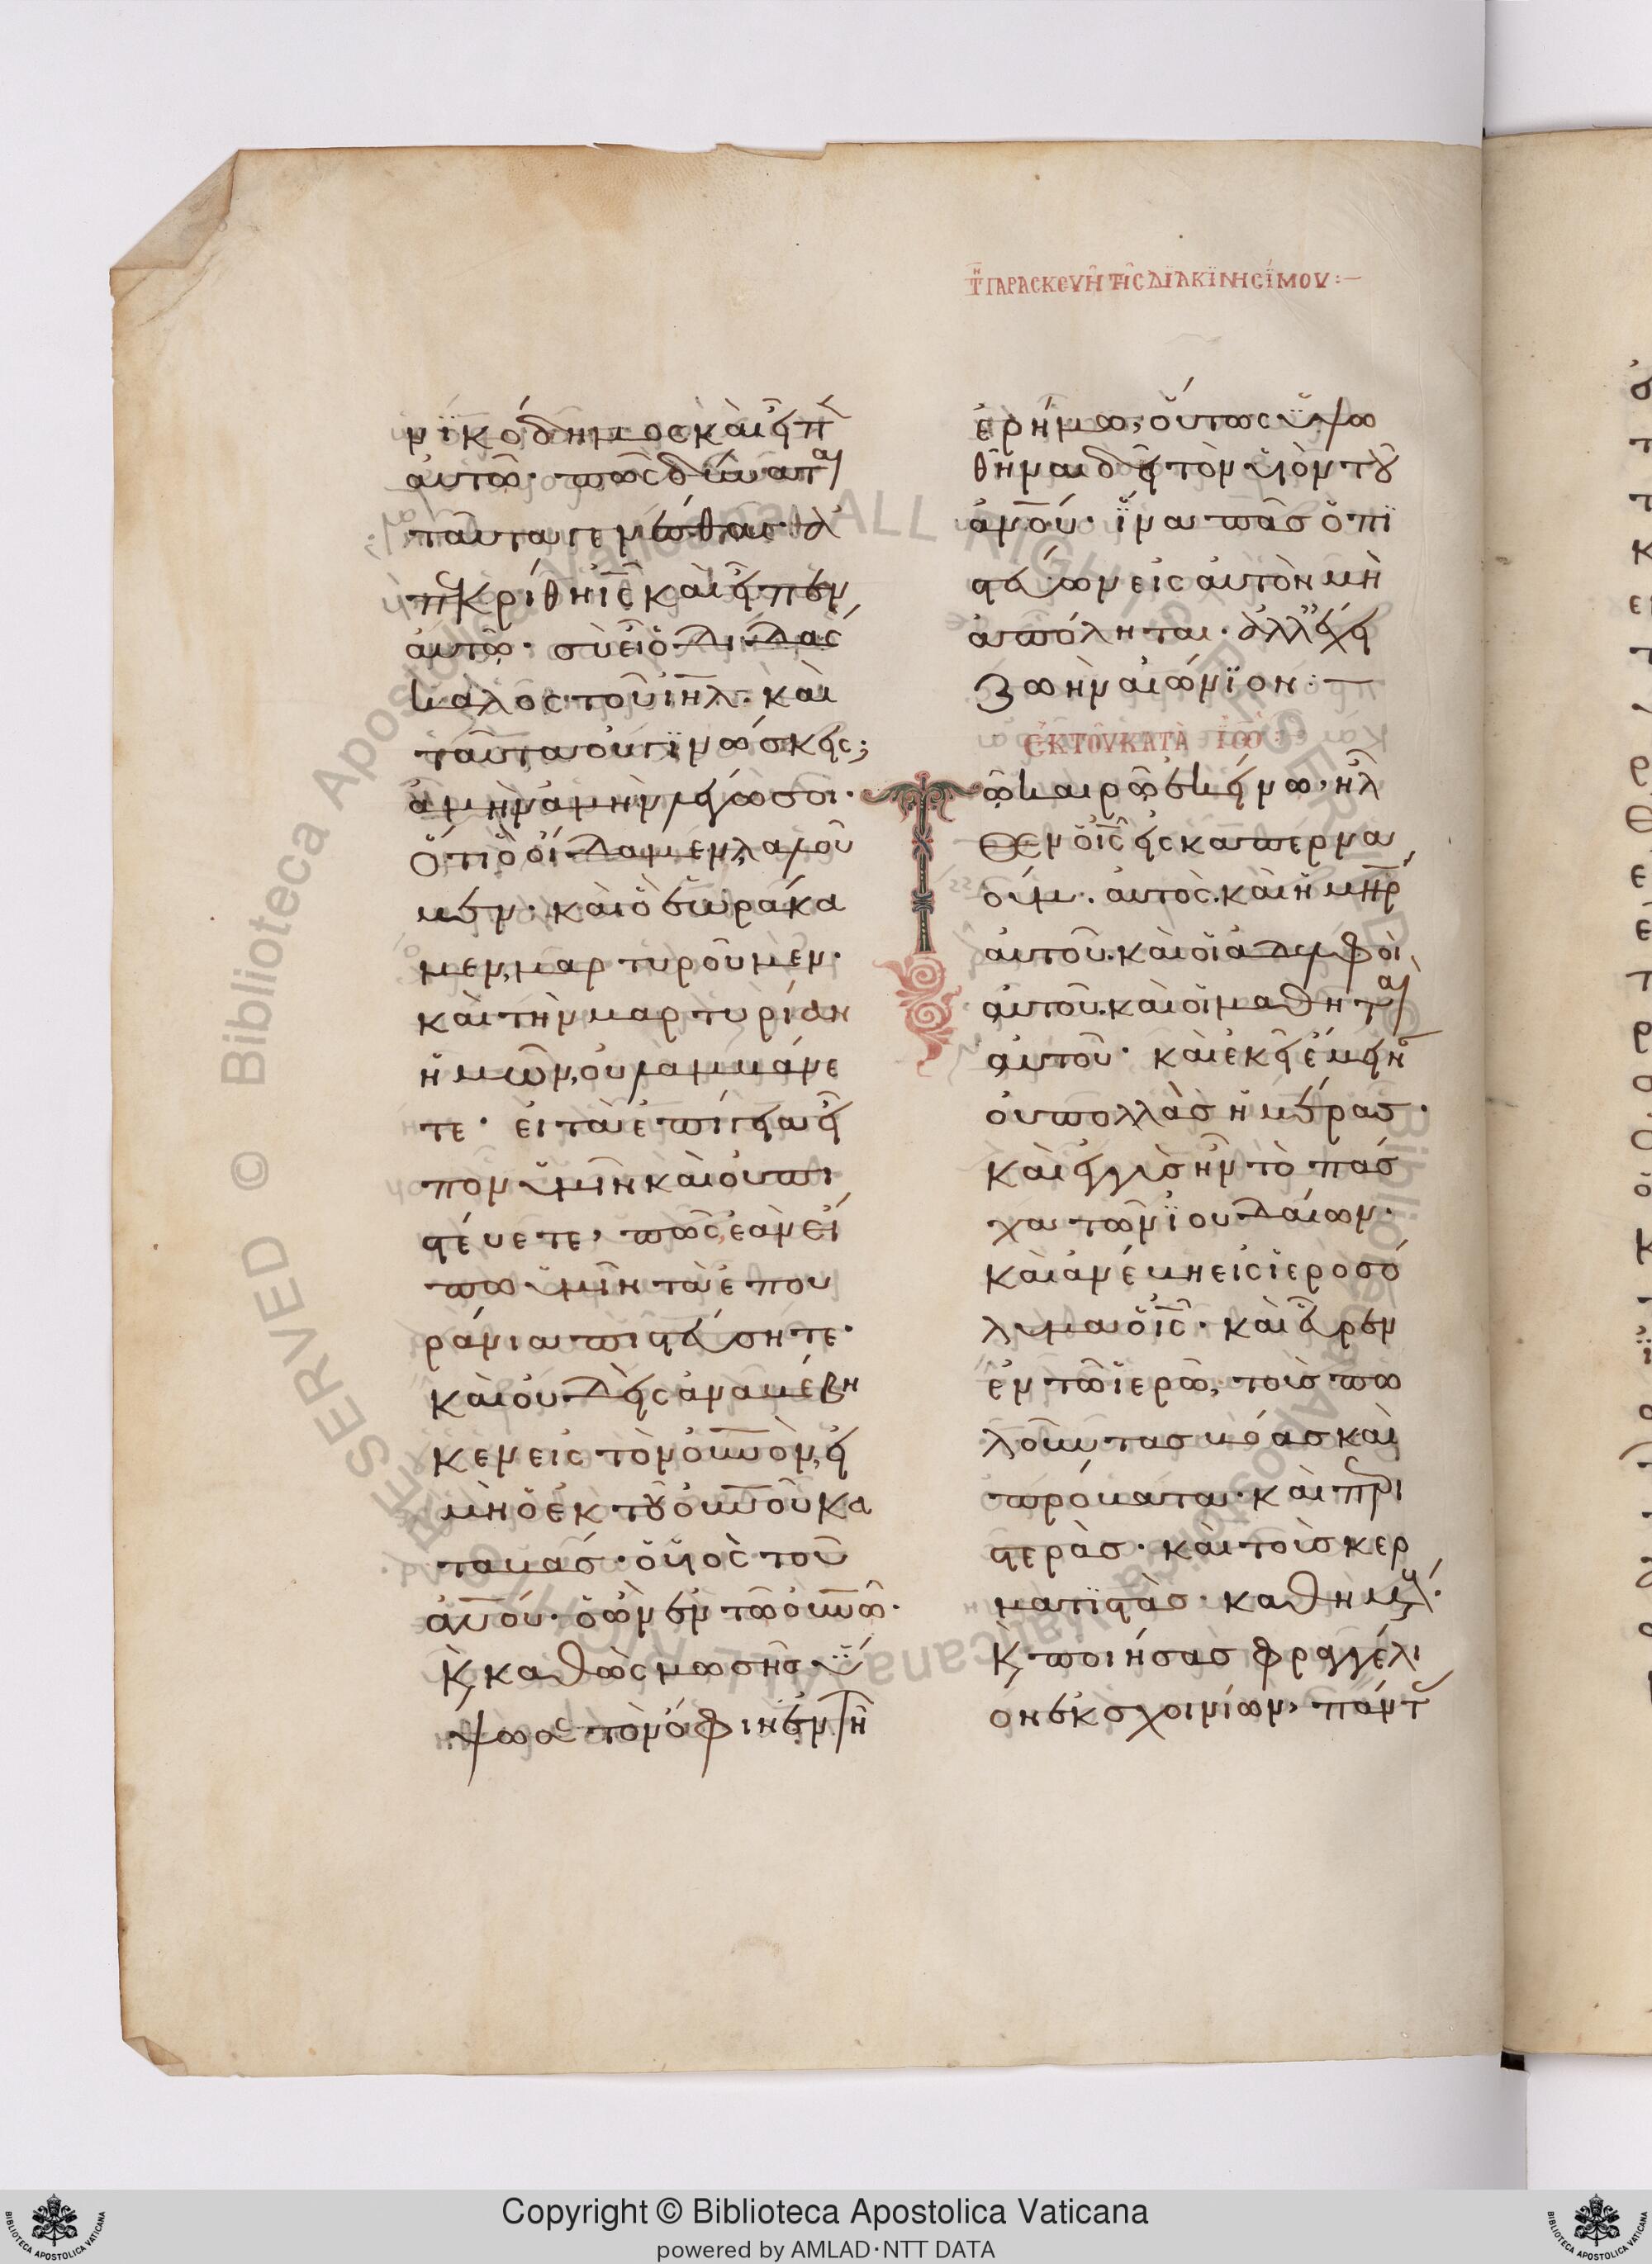 τῇ παρασκευῇ τῆς διακϊνησϊμου :—
νϊκόδημος καὶ εἶπὲ
αὐτῶ· πῶς δύναται
ταῦτα γενέσθαι· ἀ
πεκρίθη ἰς̅ καὶ εἶπεν
αὐτῶ· σὺ εἶ ὁ διδάσ
καλος τοῦ ιηλ̅· καὶ
ταῦτα οὐ γϊνώσκεις;
ἀμὴν ἀμὴν λέγω σοι·
ὅτι ὃ οἴδαμεν, λαλοῦ
μεν· καὶ ὃ ἑωράκα
μεν, μαρτυροῦμεν·
καὶ τὴν μαρτυρίαν
ἡμῶν, οὐ λαμβάνε
τε· εἰ τὰ ἐπίγεια εἶ
πον ὑμῖν καὶ οὐ πι
στεύετε, πῶς ἐὰν εἴ
πω ὑμῖν τὰ ἐπου
ράνια πιστεύσητε·
καὶ οὐδεὶς ἀναβέβη
κεν εἰς τὸν οὐνὸν, εἰ
μὴ ὁ ἐκ τοῦ οὐνοῦ κα
ταβάς· ὁ υἱὸς τοῦ
ἀνου· ὁ ὢν ἐν τῶ οὐνῶ·
Κ, καθὼς μωσῆς ὕ
ψωσε τὸν ὄφιν ἐν τῆ
ἐρήμω, οὕτως ὑψω
θῆναι δεῖ τὸν υἱὸν τοῦ
ἀνου· ἵνα πᾶσ ὁ πϊ
στεύων εἰς αὐτὸν μὴ
ἀπόληται· ἀλλ' ἔχει
ζωὴν αἰώνϊον :—
ἐκ τοῦ κατὰ ἰω̅
Τῶ καιρῶ ἐκείνω, ἦλ
θεν ὁ ις̅ εἰς καπερνα
ούμ· αὐτὸς. καὶ ἡ μηρ̅
αὐτοῦ. καὶ οἱ ἀδελφοὶ
αὐτοῦ. καὶ οἱ μαθηταὶ
αὐτοῦ· καὶ ἐκεῖ ἔμειν
οὐ πολλὰσ ἡμέρασ·
καὶ ἐγγὺσ ἦν τὸ πάσ
χα τῶν ϊουδαίων·
καὶ ἀνέβη εἰς ἱεροσό
λυμα ὁ ις̅· καὶ εὗρεν
ἐν τῶ ἱερῶ, τοὺσ πω
λοῦντασ βόασ καὶ
πρόβατα· καὶ περι
στερὰσ· καὶ τοὺσ κερ
ματϊστὰσ· καθημέν·
Κ, ποιήσασ φραγγέλι
ον ἐκ σχοινίων, πάντ